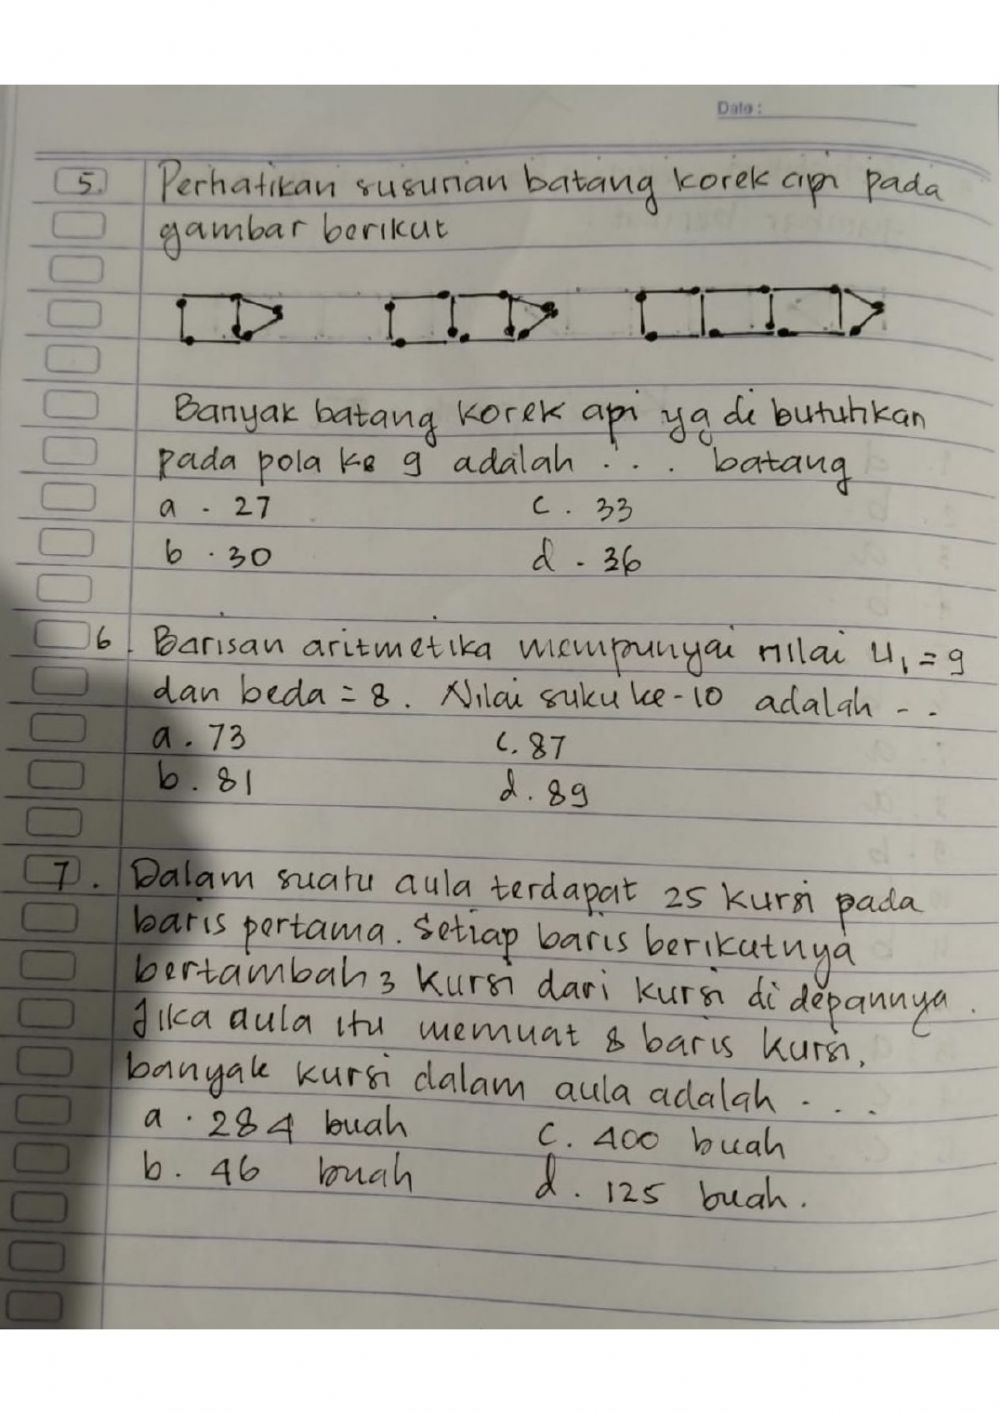 Date:
5. Perhatikan susunan batang korek api pada
gambar berikut
Banyak batang korek api yg di butuhkan
pada pola ke 9 adalah . . . batang
a. 27 c. 33
b. 30 d. 36
6. Barisan aritmetika mempunyai nilai U₁ = 9
dan beda = 8. Nilai suku ke-10 adalah - -
a. 73 c. 87
b. 81 d. 89
7. Dalam suatu aula terdapat 25 kursi pada
baris pertama. Setiap baris berikutnya
bertambah 3 kursi dari kursi di depannya.
Jika aula itu memuat 8 baris kursi,
banyak kursi dalam aula adalah . . .
a. 284 buah c. 400 buah
b. 46 buah d. 125 buah.